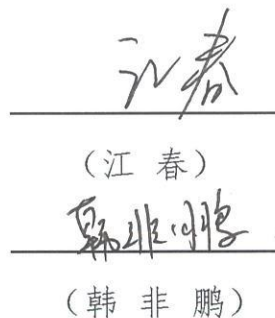 江春
(江 春)
韩非鹏
(韩 非 鹏)